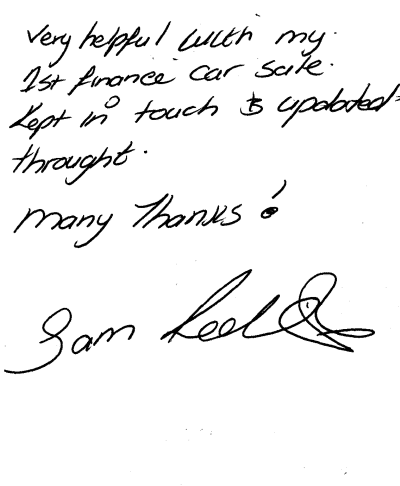 Very helpful with my.
1st finance car sale.
Kept in touch & updated
throught.
Many Thanks!
Sam